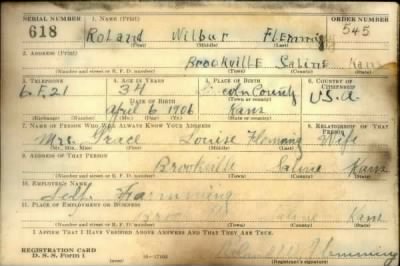 SERIAL NUMBER 1. NAME (Print) ORDER NUMBER
618 Roland Wilbur Flemming 545
(First) (Middle) (Last)
2. ADDRESS (Print)
Brookville Saline Kans
(Number and street or R. F. D. number) (Town) (County) (State)
3. TELEPHONE 4. AGE IN YEARS 5. PLACE OF BIRTH 6. COUNTRY OF CITIZENSHIP
6 F 21 34 County U.S.a
DATE OF BIRTH (Town or county)
April 6 1906 Kans
(Exchange) (Number) (Mo.) (Day) (Yr.) (State or country)
7. NAME OF PERSON WHO WILL ALWAYS KNOW YOUR ADDRESS 8. RELATIONSHIP OF THAT PERSON
Mrs. Grace Louise Flemming Wife
(Mr., Mrs., Miss) (First) (Middle) (Last)
9. ADDRESS OF THAT PERSON
Brookville Saline Kans
(Number and street or R. F. D. number) (Town) (County) (State)
10. EMPLOYER'S NAME
Self Farmming
11. PLACE OF EMPLOYMENT OR BUSINESS
Saline Kans
(Number and street or R. F. D. number) (Town) (County) (State)
I AFFIRM THAT I HAVE VERIFIED ABOVE ANSWERS AND THAT THEY ARE TRUE.
REGISTRATION CARD
D. S. S. Form 1 16—17105 Flemming
(Registrant's signature)